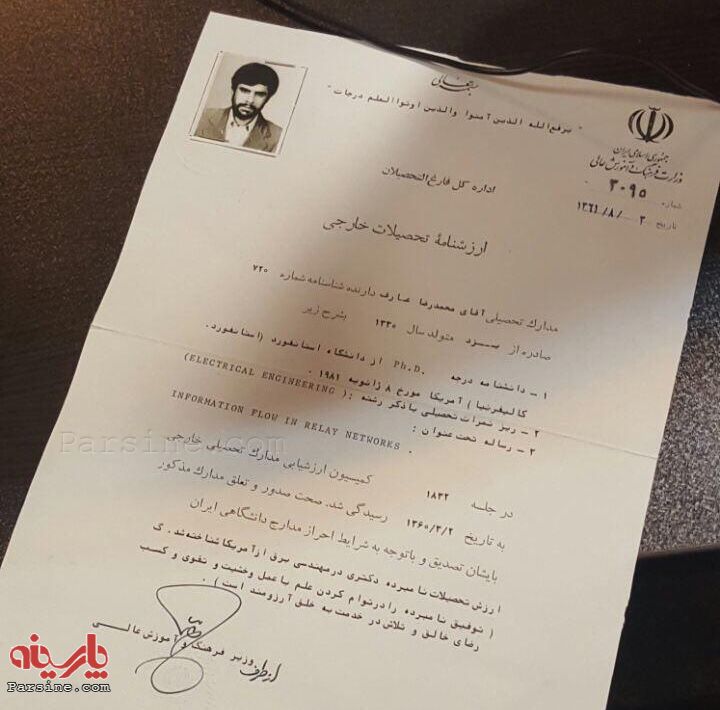 بسمه تعالی
" یرفع الله الذین آمنوا والذین اوتوا العلم درجات "
جمهوری اسلامی ایران
وزارت فرهنگ و آموزش عالی
شماره ۳۰۹۵
تاریخ ۱۳۶۱/۸/۲
اداره کل فارغ التحصیلان
ارزشنامهٔ تحصیلات خارجی
مدارک تحصیلی آقای محمدرضا عارف دارنده شناسنامه شماره ۷۲۰
صادره از یــزد متولد سال ۱۳۳۰ بشرح زیر
۱ – دانشنامه درجه Ph.D. از دانشگاه استانفورد (استانفورد.
کالیفرنیا) آمریکا مورخ ۸ ژانویه ۱۹۸۱ .
۲ – ریز نمرات تحصیلی با ذکر رشته : (ELECTRICAL ENGINEERING)
۳ – رساله تحت عنوان :
INFORMATION FLOW IN RELAY NETWORKS .
در جلسه ۱۸۳۲ کمیسیون ارزشیابی مدارک تحصیلی خارجی
به تاریخ ۱۳۶۰/۳/۲ رسیدگی شد. صحت صدور و تعلق مدارک مذکور
بایشان تصدیق و باتوجه به شرایط احراز مدارج دانشگاهی ایران
ارزش تحصیلات نامبرده دکتری در مهندسی برق از آمریکا شناخته شد . گ
( توفیق نامبرده را در توام کردن علم با عمل وخشیت و تقوی و کسب
رضای خالق و تلاش در خدمت به خلق آرزومند است ) .
از طرف وزیر فرهنگ و آموزش عالــی
Parsine.com
پارسینه
Parsine.com